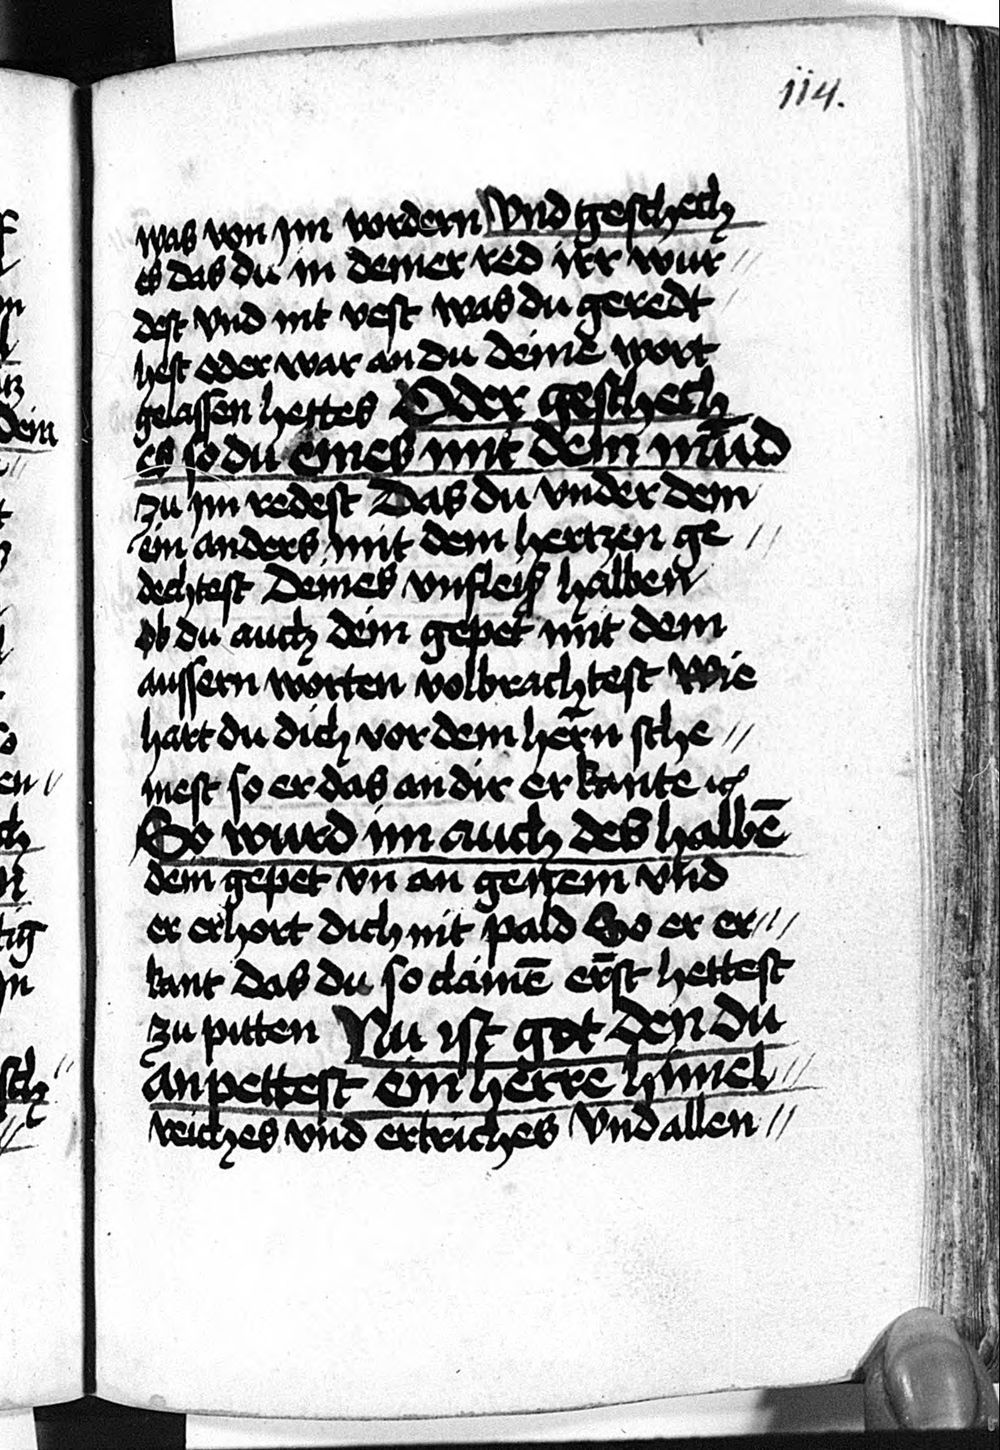 114.
was von jm vordern Vnd geschech
es das du in deiner red irr wur //
dest vnd nit vest was du geredt /
hest oder war an du deine wort
gelassen hettes Oder geschech
es so du eines mit dem mūd
zu jm redest Das du vnder dem
ein anders mit dem hertzen ge //
dechtest Deines vnfleiß halben
ob du auch dein gepet mit dem
aussern worten volbrachtest Wie
hart du dich vor dem herrn sche //
mest so er das an dir erkante
So wurd im auch des halbē
dein gepet vn an genem vnd
er erhort dich nit pald So er er //
kant das du so clainē erst hettest
zu pitten Nu ist got den du
an pettest ein herre himel //
reiches vnd ertriches Vnd allen //